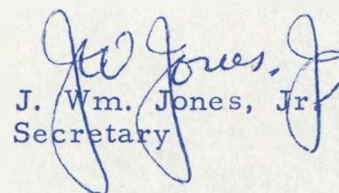 JW Jones, J
J. Wm. Jones, Jr.
Secretary